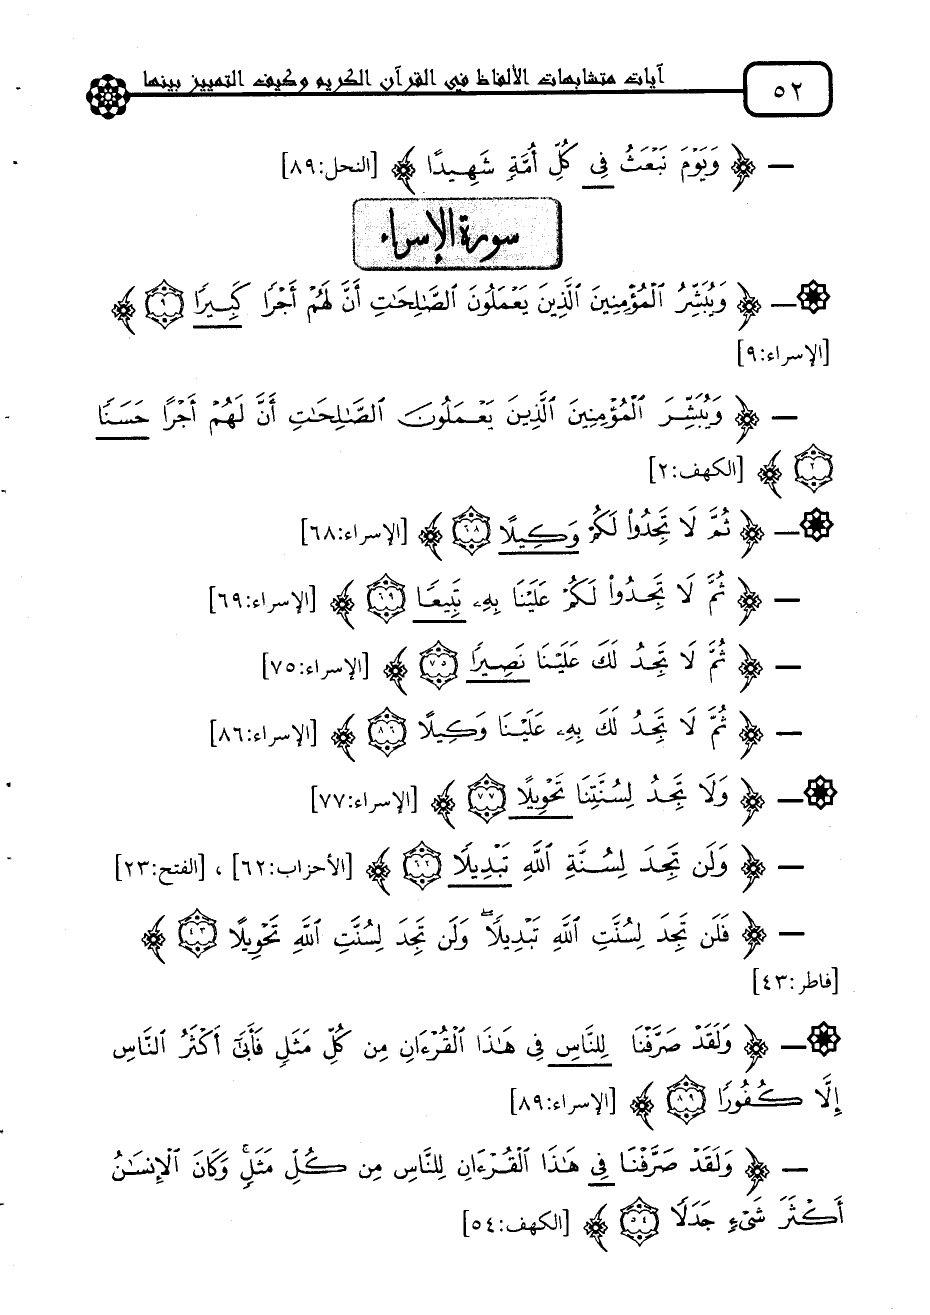 ٥٢ آيات متشابهات الألفاظ في القرآن الكريم وكيف التمييز بينها
— ﴿ وَيَوْمَ نَبْعَثُ فِى كُلِّ أُمَّةٍ شَهِيدًا ﴾ [النحل:٨٩]
سورة الإسراء
— ﴿ وَيُبَشِّرُ ٱلْمُؤْمِنِينَ ٱلَّذِينَ يَعْمَلُونَ ٱلصَّـٰلِحَـٰتِ أَنَّ لَهُمْ أَجْرًا كَبِيرًا ٩ ﴾
[الإسراء:٩]
— ﴿ وَيُبَشِّرَ ٱلْمُؤْمِنِينَ ٱلَّذِينَ يَعْمَلُونَ ٱلصَّـٰلِحَـٰتِ أَنَّ لَهُمْ أَجْرًا حَسَنًا
٢ ﴾ [الكهف:٢]
— ﴿ ثُمَّ لَا تَجِدُوا۟ لَكُمْ وَكِيلًا ٦٨ ﴾ [الإسراء:٦٨]
— ﴿ ثُمَّ لَا تَجِدُوا۟ لَكُمْ عَلَيْنَا بِهِۦ تَبِيعًا ٦٩ ﴾ [الإسراء:٦٩]
— ﴿ ثُمَّ لَا تَجِدُ لَكَ عَلَيْنَا نَصِيرًا ٧٥ ﴾ [الإسراء:٧٥]
— ﴿ ثُمَّ لَا تَجِدُ لَكَ بِهِۦ عَلَيْنَا وَكِيلًا ٨٦ ﴾ [الإسراء:٨٦]
— ﴿ وَلَا تَجِدُ لِسُنَّتِنَا تَحْوِيلًا ٧٧ ﴾ [الإسراء:٧٧]
— ﴿ وَلَن تَجِدَ لِسُنَّةِ ٱللَّهِ تَبْدِيلًا ٦٢ ﴾ [الأحزاب:٦٢] ، [الفتح:٢٣]
— ﴿ فَلَن تَجِدَ لِسُنَّتِ ٱللَّهِ تَبْدِيلًا ۖ وَلَن تَجِدَ لِسُنَّتِ ٱللَّهِ تَحْوِيلًا ٤٣ ﴾
[فاطر:٤٣]
— ﴿ وَلَقَدْ صَرَّفْنَا لِلنَّاسِ فِى هَـٰذَا ٱلْقُرْءَانِ مِن كُلِّ مَثَلٍ فَأَبَىٰٓ أَكْثَرُ ٱلنَّاسِ
إِلَّا كُفُورًا ٨٩ ﴾ [الإسراء:٨٩]
— ﴿ وَلَقَدْ صَرَّفْنَا فِى هَـٰذَا ٱلْقُرْءَانِ لِلنَّاسِ مِن كُلِّ مَثَلٍ ۚ وَكَانَ ٱلْإِنسَـٰنُ
أَكْثَرَ شَىْءٍ جَدَلًا ٥٤ ﴾ [الكهف:٥٤]